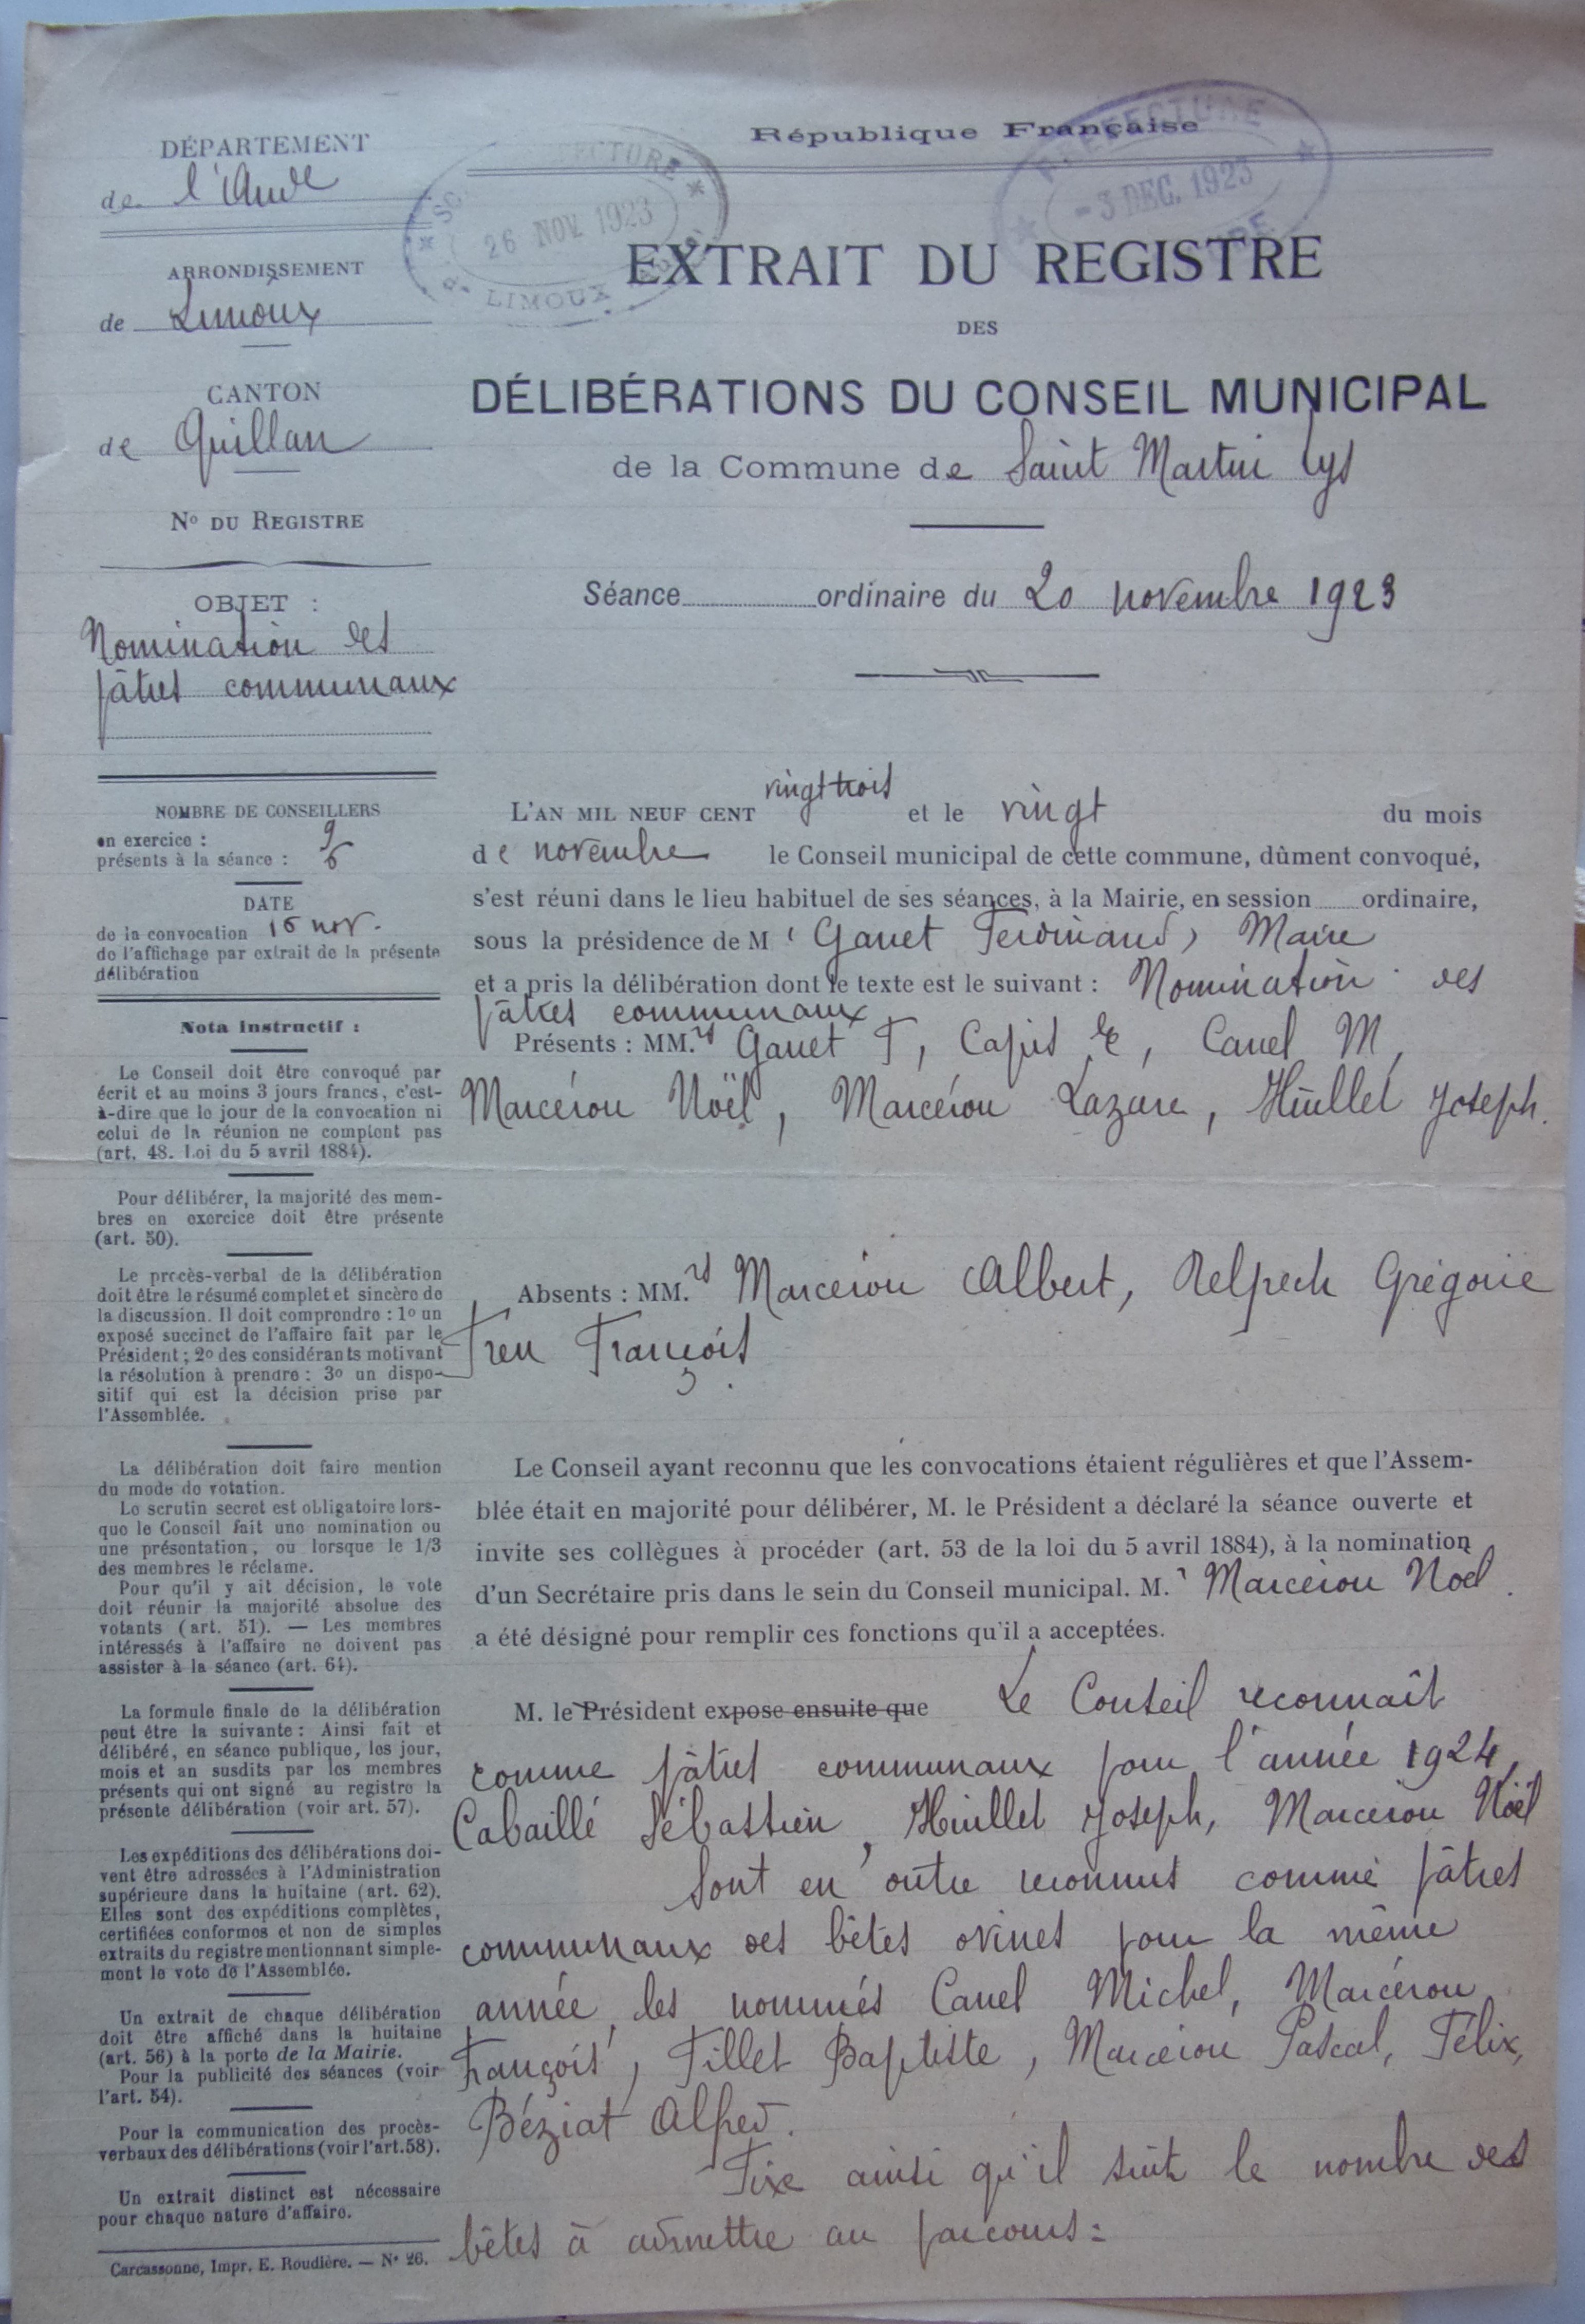 République Française
PRÉFECTURE
- 3 DEC. 1923
26 NOV. 1923
LIMOUX
DÉPARTEMENT
de l'Aude
ARRONDISSEMENT
de Limoux
CANTON
de Quillan
N° DU REGISTRE
OBJET :
Nomination des
pâtres communaux
NOMBRE DE CONSEILLERS
en exercice : 9
présents à la séance : 6
DATE
de la convocation 15 nov.
de l'affichage par extrait de la présente
délibération
Nota instructif :
Le Conseil doit être convoqué par
écrit et au moins 3 jours francs, c'est-
à-dire que le jour de la convocation ni
celui de la réunion ne comptent pas
(art. 48. Loi du 5 avril 1884).
Pour délibérer, la majorité des mem-
bres en exercice doit être présente
(art. 50).
Le procès-verbal de la délibération
doit être le résumé complet et sincère de
la discussion. Il doit comprendre : 1° un
exposé succinct de l'affaire fait par le
Président ; 2° des considérants motivant
la résolution à prendre : 3° un dispo-
sitif qui est la décision prise par
l'Assemblée.
La délibération doit faire mention
du mode de votation.
Le scrutin secret est obligatoire lors-
que le Conseil fait une nomination ou
une présentation, ou lorsque le 1/3
des membres le réclame.
Pour qu'il y ait décision, le vote
doit réunir la majorité absolue des
votants (art. 51). — Les membres
intéressés à l'affaire ne doivent pas
assister à la séance (art. 64).
La formule finale de la délibération
peut être la suivante : Ainsi fait et
délibéré, en séance publique, les jour,
mois et an susdits par les membres
présents qui ont signé au registre la
présente délibération (voir art. 57).
Les expéditions des délibérations doi-
vent être adressées à l'Administration
supérieure dans la huitaine (art. 62).
Elles sont des expéditions complètes,
certifiées conformes et non de simples
extraits du registre mentionnant simple-
ment le vote de l'Assemblée.
Un extrait de chaque délibération
doit être affiché dans la huitaine
(art. 56) à la porte de la Mairie.
Pour la publicité des séances (voir
l'art. 54).
Pour la communication des procès-
verbaux des délibérations (voir l'art. 58).
Un extrait distinct est nécessaire
pour chaque nature d'affaire.
Carcassonne, Impr. E. Roudière. — N° 26.
EXTRAIT DU REGISTRE
DES
DÉLIBÉRATIONS DU CONSEIL MUNICIPAL
de la Commune de Saint Martin Lys
Séance ordinaire du 20 novembre 1923
L'AN MIL NEUF CENT vingt trois et le vingt du mois
de novembre le Conseil municipal de cette commune, dûment convoqué,
s'est réuni dans le lieu habituel de ses séances, à la Mairie, en session ordinaire,
sous la présidence de M r Ganet Ferdinand, Maire
et a pris la délibération dont le texte est le suivant : Nomination des
pâtres communaux
Présents : MM.rs Ganet F, Capis E, Canel M,
Marcérou Noël, Marcérou Lazare, Huillet Joseph.
Absents : MM.rs Marcerou Albert, Delpech Grégoire
Treu François.
Le Conseil ayant reconnu que les convocations étaient régulières et que l'Assem-
blée était en majorité pour délibérer, M. le Président a déclaré la séance ouverte et
invite ses collègues à procéder (art. 53 de la loi du 5 avril 1884), à la nomination
d'un Secrétaire pris dans le sein du Conseil municipal. M. r Marcerou Noel.
a été désigné pour remplir ces fonctions qu'il a acceptées.
M. le Président expose ensuite que Le Conseil reconnaît
comme pâtres communaux pour l'année 1924,
Cabaillé Sébastien, Huillet Joseph, Marcerou Noël
Sont en outre reconnus comme pâtres
communaux des bêtes ovines pour la même
année, les nommés Canel Michel, Marcérou
François, Tillet Baptiste, Marcerou Pascal, Félix,
Béziat Alfred.
Fixe ainsi qu'il suit le nombre des
bêtes à admettre au parcours :